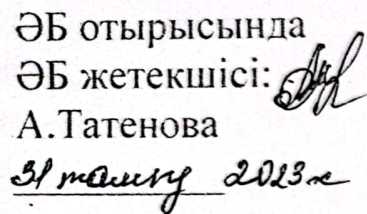 ӘБ отырысында
ӘБ жетекшісі:
А.Татенова
31 тамыз 2023ж